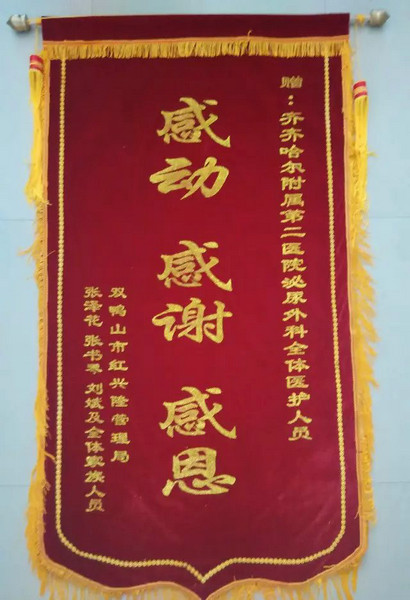 赠：齐齐哈尔附属第二医院泌尿外科全体医护人员
感动 感谢 感恩
双鸭山市红兴隆管理局
张泽花 张书 刘斌及全体家族人员